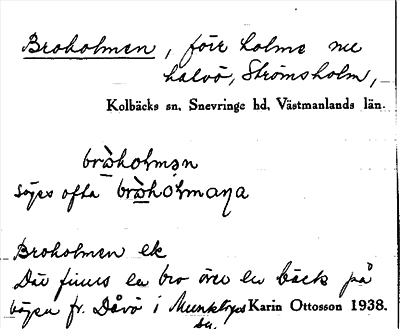 Broholmen, förr holme nu
halvö, Strömsholm,
Kolbäcks sn, Snevringe hd, Västmanlands län.
bròhoɫmən
säges ofta bròhóɫmaɳa
Broholmen ek
Där finns en bro över en bäck på
vägen fr. Dåvö i Munktorps Karin Ottosson 1938.
sn